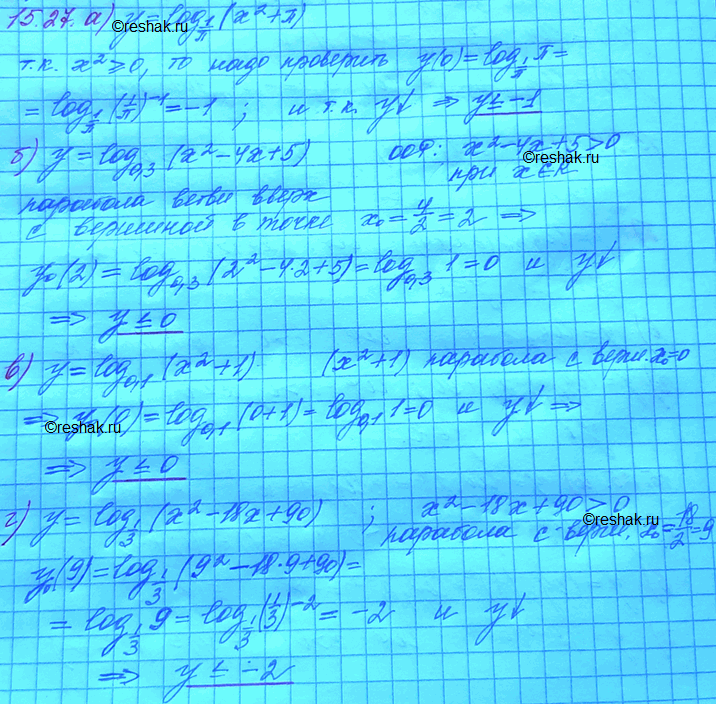 15.27. а) y = log_{1/π} (x² + π)
©reshak.ru
т.к. x² ≥ 0, то надо проверить y(0) = log_{1/π} π =
= log_{1/π} (1/π)⁻¹ = -1 ; и т.к. y↓ ⇒ y ≤ -1
б) y = log_{0,3} (x² - 4x + 5) ООФ: x² - 4x + 5 > 0
©reshak.ru
при x ∈ R
парабола ветви вверх
с вершиной в точке x₀ = 4/2 = 2 ⇒
y₀(2) = log_{0,3} (2² - 4·2 + 5) = log_{0,3} 1 = 0 и y↓
⇒ y ≤ 0
в) y = log_{0,1} (x² + 1) (x² + 1) парабола с верш. x₀ = 0
⇒ y₀(0) = log_{0,1} (0 + 1) = log_{0,1} 1 = 0 и y↓ ⇒
©reshak.ru
⇒ y ≤ 0
г) y = log_{1/3} (x² - 18x + 90) ; x² - 18x + 90 > 0
©reshak.ru
парабола с верш. x₀ = 18/2 = 9
y₀(9) = log_{1/3} (9² - 18·9 + 90) =
= log_{1/3} 9 = log_{1/3} (1/3)⁻² = -2 и y↓
⇒ y ≤ -2